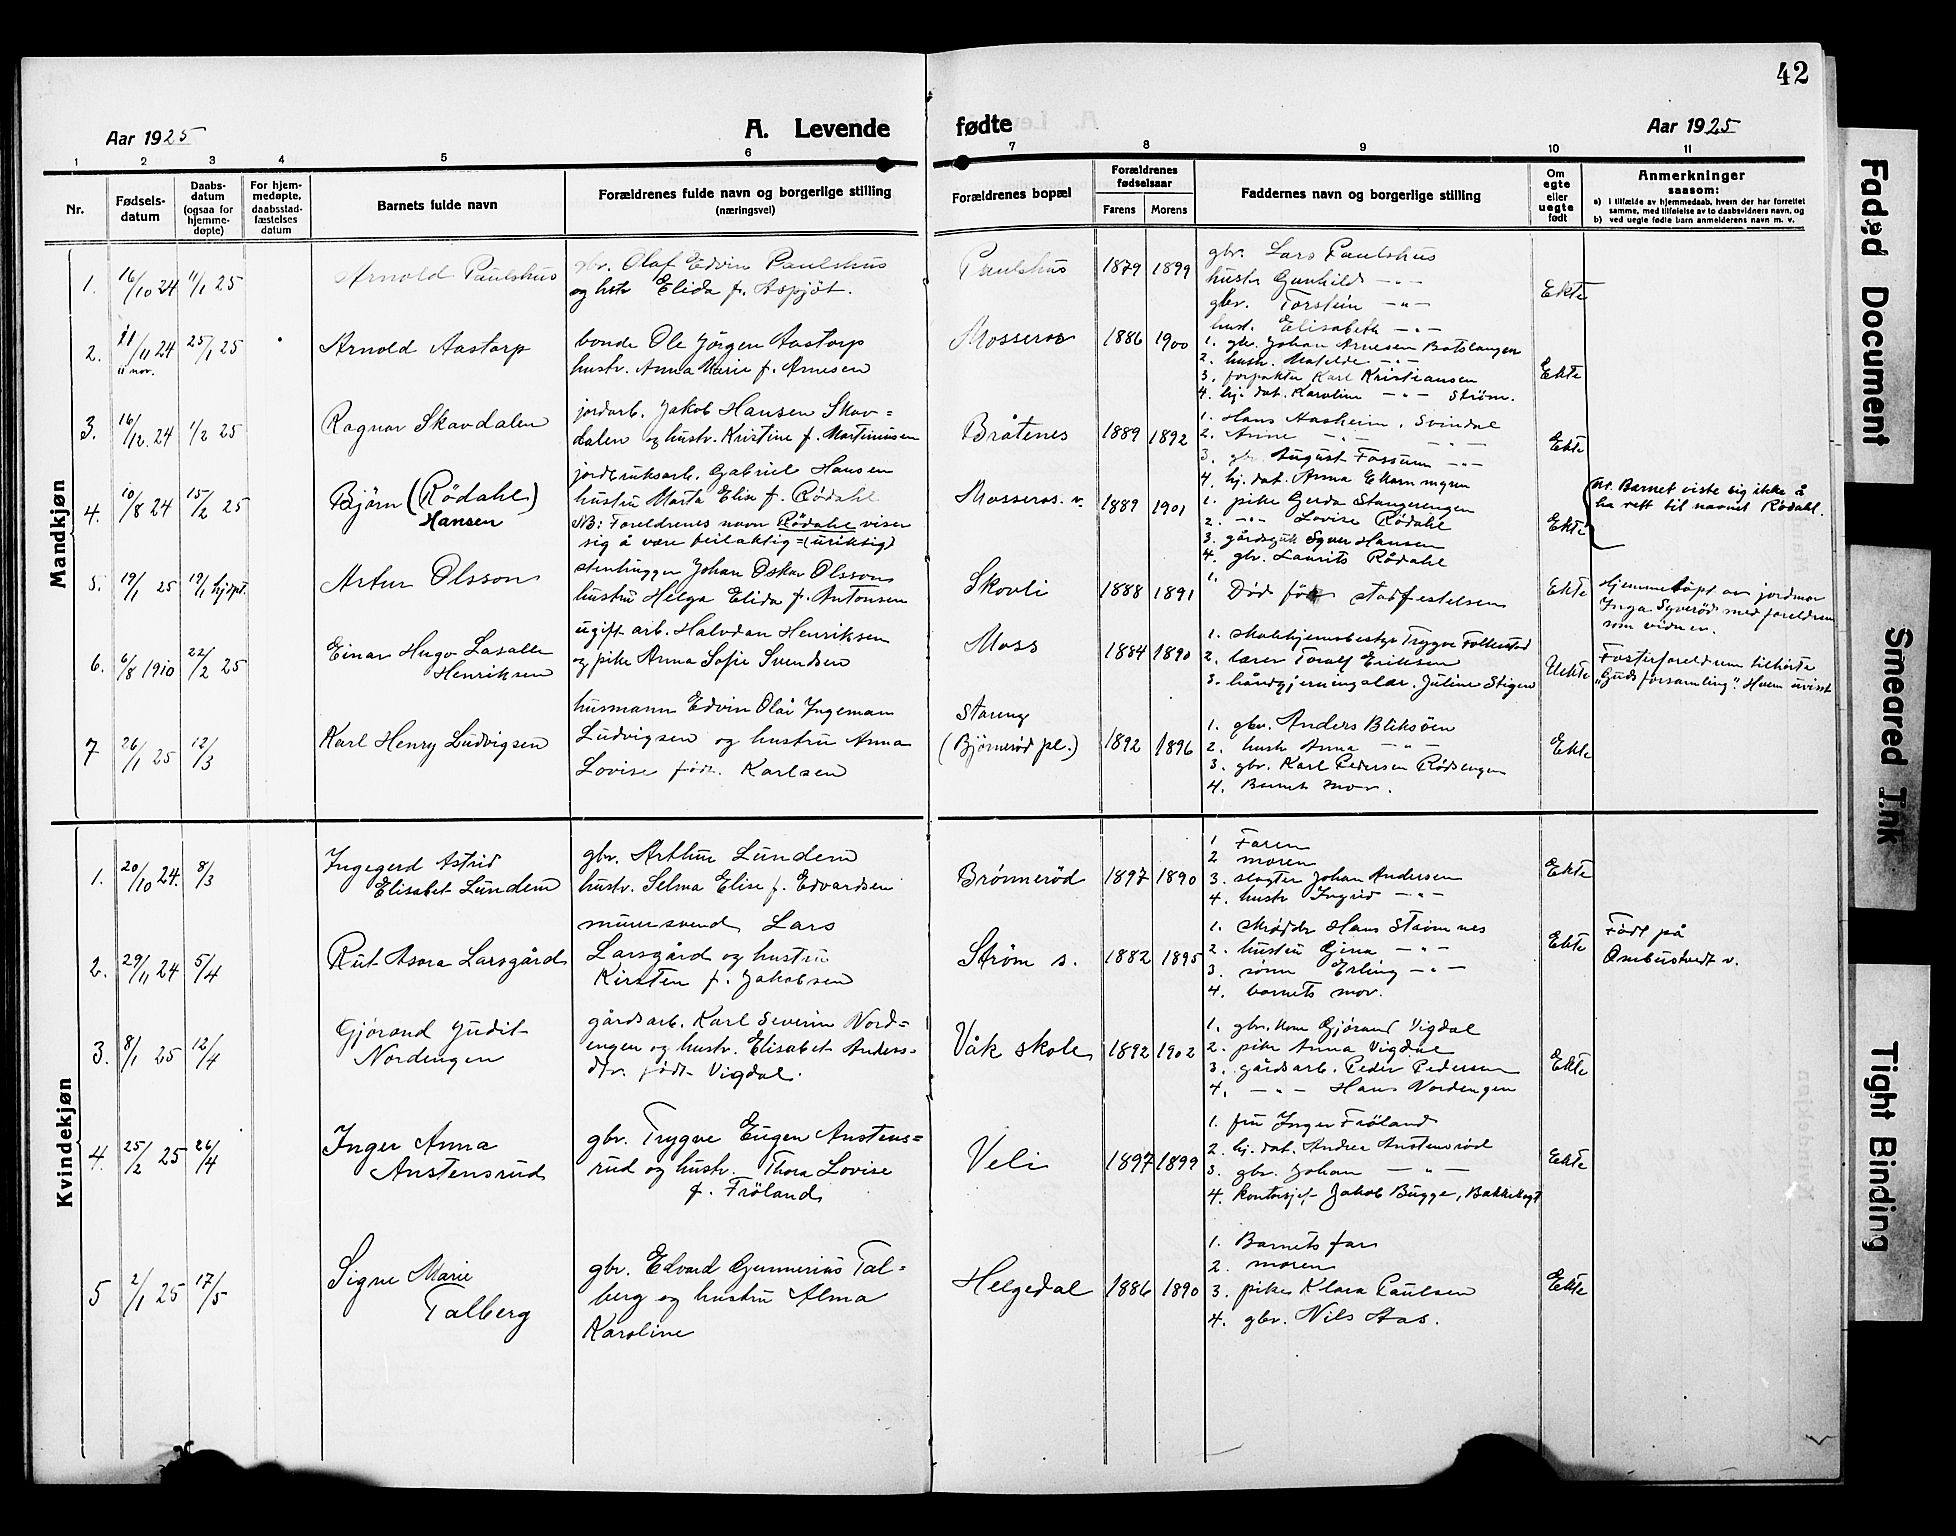 42
Aar 1925
A. Levende
fødte
Aar 1925
1 2 3 4 5 6 7 8 9 10 11
Nr.
Fødsels-
datum
Daabs-
datum
(ogsaa for
hjemme-
døpte)
For hjem-
medøpte,
daabsstad-
fæstelses
datum
Barnets fulde navn
Forældrenes fulde navn og borgerlige stilling
(næringsvei)
Forældrenes bopæl
Forældrenes
fødselsaar
Farens Morens
Faddernes navn og borgerlige stilling
Om
egte
eller
uegte
født
Anmerkninger
saasom:
a) i tilfælde av hjemmedaab, hvem der har forrettet
samme, med tilføielse av to daabsvidners navn, og
b) ved uegte fødte barn anmelderens navn m. v.
Mandkjøn
1. 16/10 24 11/1 25
Arnold Paulshus
gbr. Olaf Edvin Paulshus
og hstr Elida f. Aspjöt.
Paulshus
1879 1899
gbr. Lars Paulshus
hustr Gunhild -"-
gbr. Torstein -"-
hust. Elisabeth -"-
Ekte
2. 11/11 24 25/1 25
11 nov.
Arnold Aastorp
bonde Ole Jörgen Aastorp
hustr. Anna Marie f. Arnesen
Mosseros
1886 1900
1. gbr. Johan Arnesen Botslangen
2. hustr. Matilde -"-
3. forpakter Karl Kristiansen
4. hj. dat. Karoline -"- Strøm.
Ekte
3. 16/12. 24 1/2 25
Ragnar Skavdalen
jordarb. Jakob Hansen Skav=
dalen og hustr. Kristine f. Martinusen
Bråtenes
1889 1892
1. Hans Aasheim, Svindal
2. Anne -"- -"-
3. gbr August Fossum -"-
4. hj. dat. Anna Ekornmyren
Ekte
4. 10/8 24 15/2 25
Björn (Rödahl)
Hansen
jordbruksarb. Gabriel Hansen
hustru Marta Elise f. Rödahl
NB: Foreldrenes navn Rödahl viser
sig å være feilaktig =(uriktig)
Mosseros. v.
1889 1901
1. pike Gerda Stangerengen
2. -"- Lovise Rödahl
3. gårdsgut Syver Hansen
4. gbr. Laurits Rådahl
Ekte
nr. Barnet viste sig ikke å
ha rett til navnet Rødahl.
5. 19/1 25 19/1 hjdpt.
Artur Olsson
stenhugger Johan Oskar Olsson
hustru Helga Elida f. Antonsen
Skovli
1888 1891
1.
Död før stadfestelsen
Ekte
Hjemmedöpt av jordmor
Inga Syveröd med foreldrene
som vidner.
6. 6/8 1910 22/2 25
Einar Hugo Lasalle
Henriksen
ugift arb. Halvdan Henriksen
og pike Anna Sofie Svendsen
Moss
1884 1890
1. Skolehjemsbestyr Trygve Folkestad
2. lærer Toralf Eriksen
3. håndgjerningslær. Juline Stigen
Uekte
Fosterforeldrene tilhörte
"Guds forsamling". Hvem uvisst
7 26/1 25 12/3
Karl Henry Ludvigsen
husmann Edvin Olai Ingeman
Ludvigsen og hustru Anna
Lovise född Karlsen
Stareng
(Bjørnerød pl.)
1892 1896
1. gbr. Anders Bliksöen
2. hustr Anna -"-
3. gbr. Karl Pedersen Rödsengen
4. Barnets mor.
Ekte
Kvindekjøn
1. 20/10 24. 8/3
Ingegerd Astrid
Elisabet Lundem
gbr. Arthur Lundem
hustr. Selma Elise f. Edvardsen
Brønnerød
1897 1890
1 Faren
2 moren
3. slagter Johan Andersen
4. hustr Ingrid -"-
Ekte
2. 29/11 24 5/4
Rut Asora Larsgård
murersvend Lars
Larsgård og hustru
Kirsten f. Jakobsen
Strøm s.
1882 1895
1. Hans Strømnes
2. hustru Gina -"-
3. sønn Erling -"-
4. barnets mor.
Ekte
Född på
Ombustvedt v.
3. 8/1 25 12/4
Gjörand Judit
Nordengen
gårdsarb. Karl Severin Nord=
engen og hustr. Elisabet Anders=
dtr. född Vigdal.
Våk skole
1892 1902
1. gbr. kone Gjörand Vigdal
2. pike Anna Vigdal
3. gårdsarb. Peder Pedersen
4. -"- Hans Nordengen
Ekte
4. 25/2 25 26/4
Inger Anna
Anstensrud
gbr. Trygve Eugen Anstens=
rud og hustr. Thora Lovise
f. Fröland
Veli
1897 1899
1. fru Inger Fröland
2. hj. dat. Andrea Anstensröd
3. gbr. Johan -"-
4. kontorsjef Jakob Bugge, Bakkebygt
Ekte
5 2/1 25 17/5
Signe Marie
Talberg
gbr. Edvard Gunnerius Tal=
berg og hustru Alma
Karoline
Helgedal
1886 1890
1. Barnets far
2. moren
3. pike Klara Paulsen
4. gbr. Nils Aas.
Ekte
Faded Document
Smeared Ink
Tight Binding